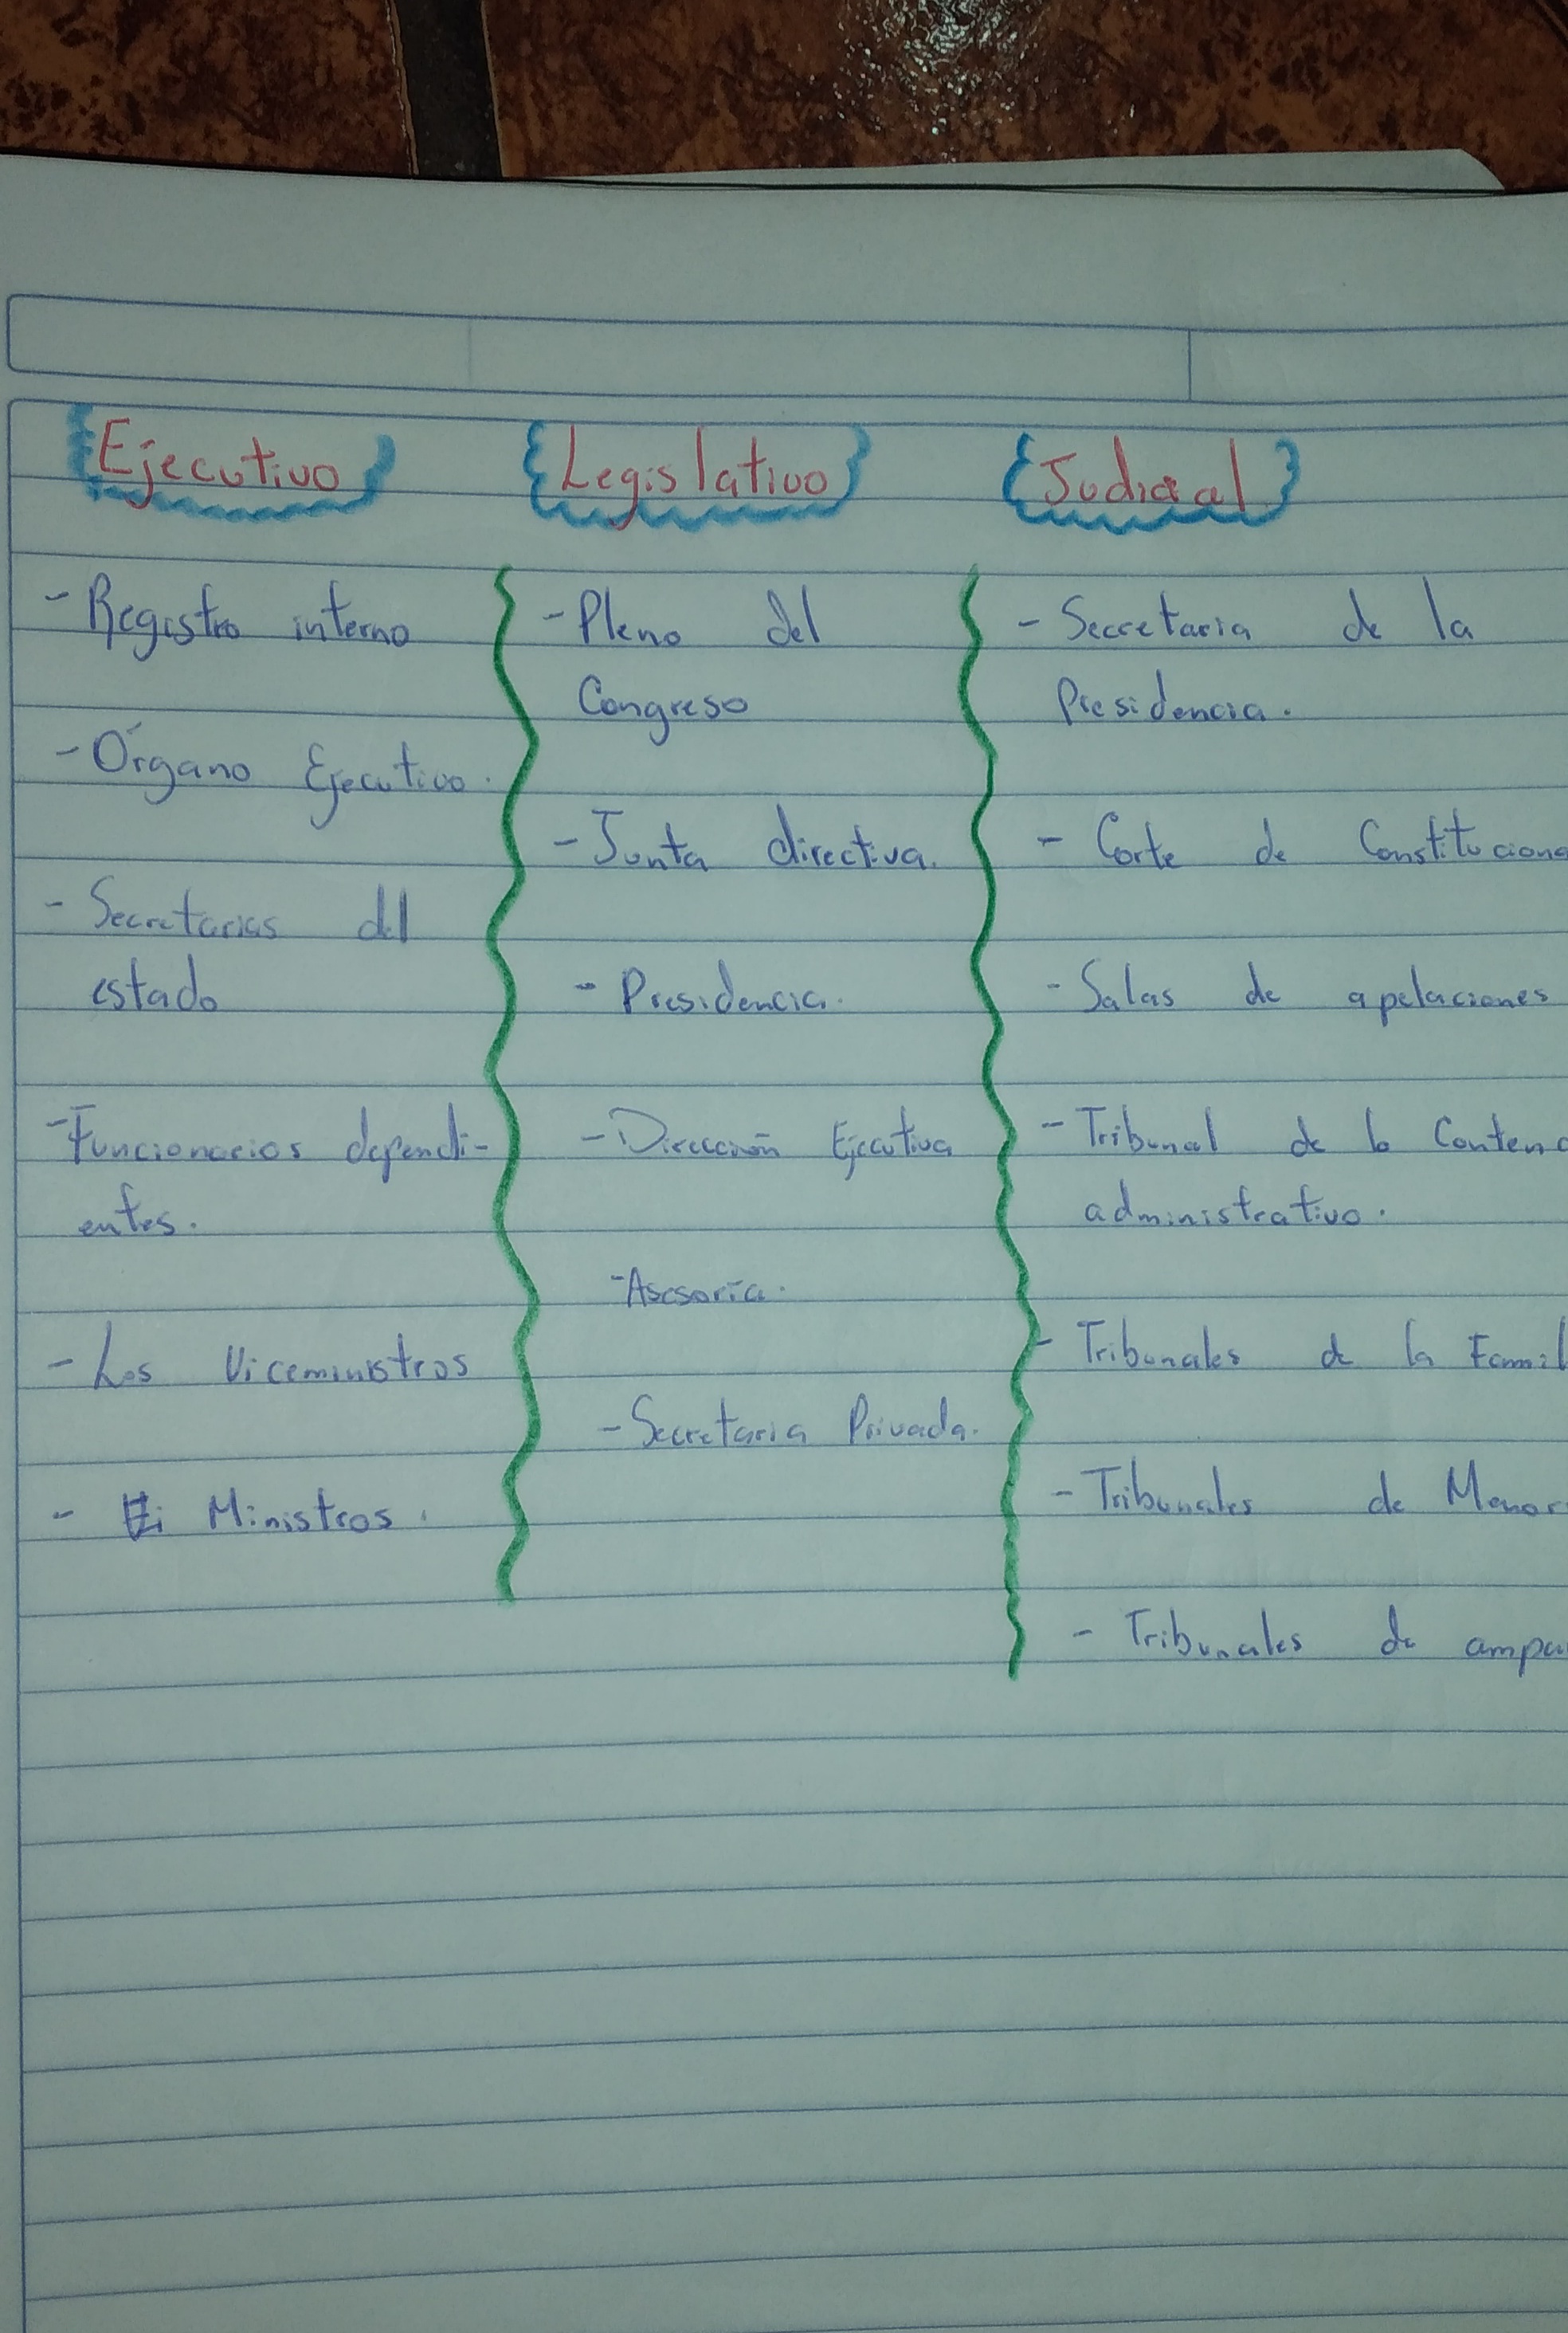 Ejecutivo
- Registro interno
- Órgano Ejecutivo.
- Secretarias del
estado
- Funcionarios dependi-
entes.
- Los Viceministros
- Ministros.
Legislativo
- Pleno del
Congreso
- Junta directiva.
- Presidencia.
- Dirección Ejecutiva
- Asesoría.
- Secretaria Privada.
Judicial
- Secretaria de la
Presidencia.
- Corte de
- Salas de apelaciones
- Tribunal de lo
administrativo.
- Tribunales de la
- Tribunales de
- Tribunales de